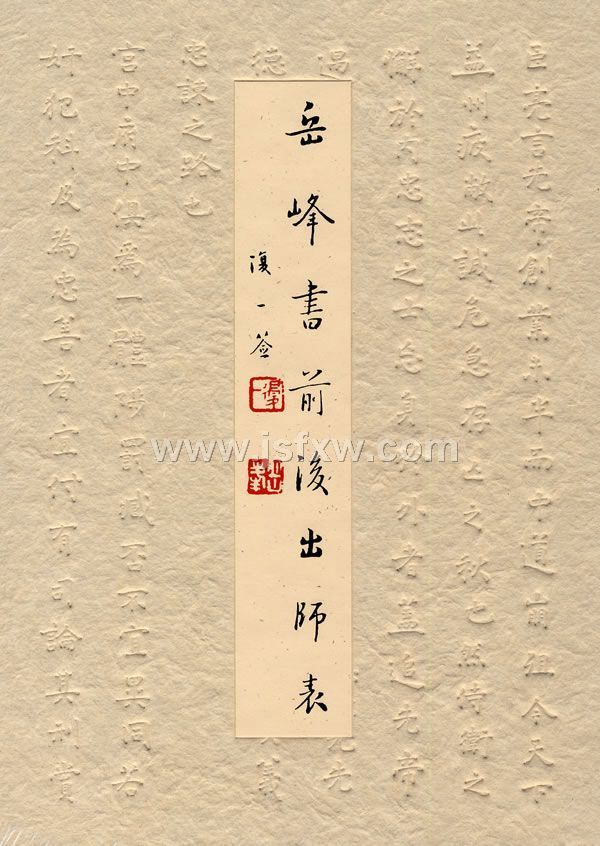 臣亮言先帝創業未半而中道崩殂今天下
益州疲敝此誠危急存亡之秋也然侍衛之
懈於內忠志之士忘身於外者蓋追先帝
遇
先
德
義
忠諫之路也
宮中府中俱爲一體陟罰臧否不宜異同若
奸犯科及為忠善者宜付有司論其刑賞
岳峰書前後出師表
復一签
www.jsfxw.com